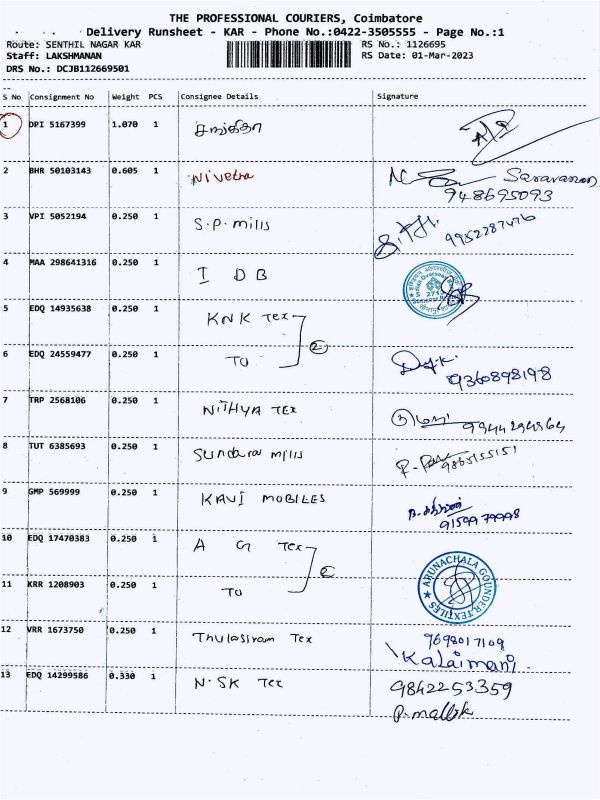 THE PROFESSIONAL COURIERS, Coimbatore
Delivery Runsheet - KAR - Phone No.:0422-3505555 - Page No.:1
Route: SENTHIL NAGAR KAR RS No.: 1126695
Staff: LAKSHMANAN RS Date: 01-Mar-2023
DRS No.: DCJB112669501
S No Consignment No Weight PCS Consignee Details Signature
1 DPI 5167399 1.070 1
2 BHR 50103143 0.605 1 Nivetha Saravanan
948695093
3 VPI 5052194 0.250 1 S.P. mills 9952287476
4 MAA 298641316 0.250 1 I D B
5 EDQ 14935638 0.250 1 KNK Tex
2
6 EDQ 24559477 0.250 1 TO
9360898198
7 TRP 2568106 0.250 1 NITHYA TEX 9944294964
8 TUT 6385693 0.250 1 Sundara mills 9865155151
9 GMP 569999 0.250 1 KAVI MOBILES
9159979998
10 EDQ 17470383 0.250 1 A G Tex
11 KRR 1208903 0.250 1 TO
ARUNACHALA GOUNDER TEXTILES
12 VRR 1673750 0.250 1 Thulasiram Tex 9698017109
Kalaimani
13 EDQ 14299586 0.330 1 N.SK Tex 9842253359
P. mallik